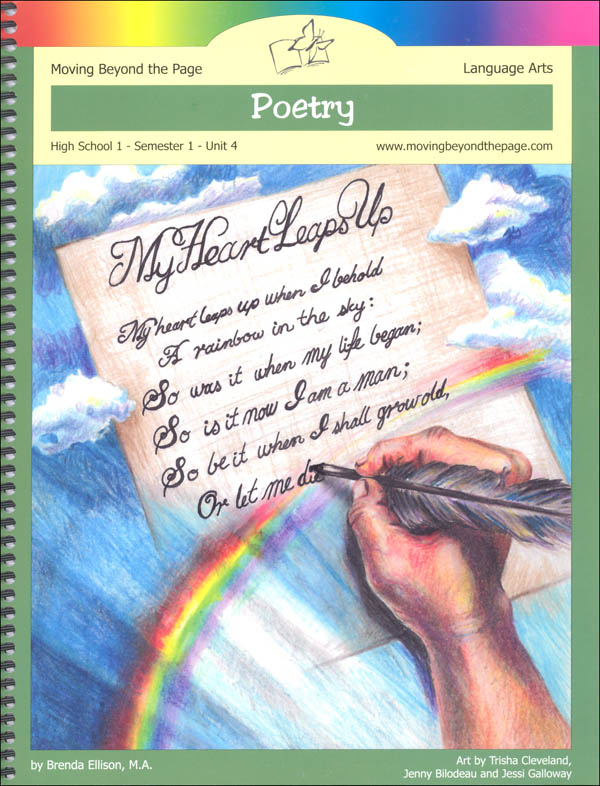 Moving Beyond the Page
Language Arts
Poetry
High School 1 - Semester 1 - Unit 4
www.movingbeyondthepage.com
My Heart Leaps Up
My heart leaps up when I behold
A rainbow in the sky:
So was it when my life began;
So is it now I am a man;
So be it when I shall grow old,
Or let me die
by Brenda Ellison, M.A.
Art by Trisha Cleveland,
Jenny Bilodeau and Jessi Galloway